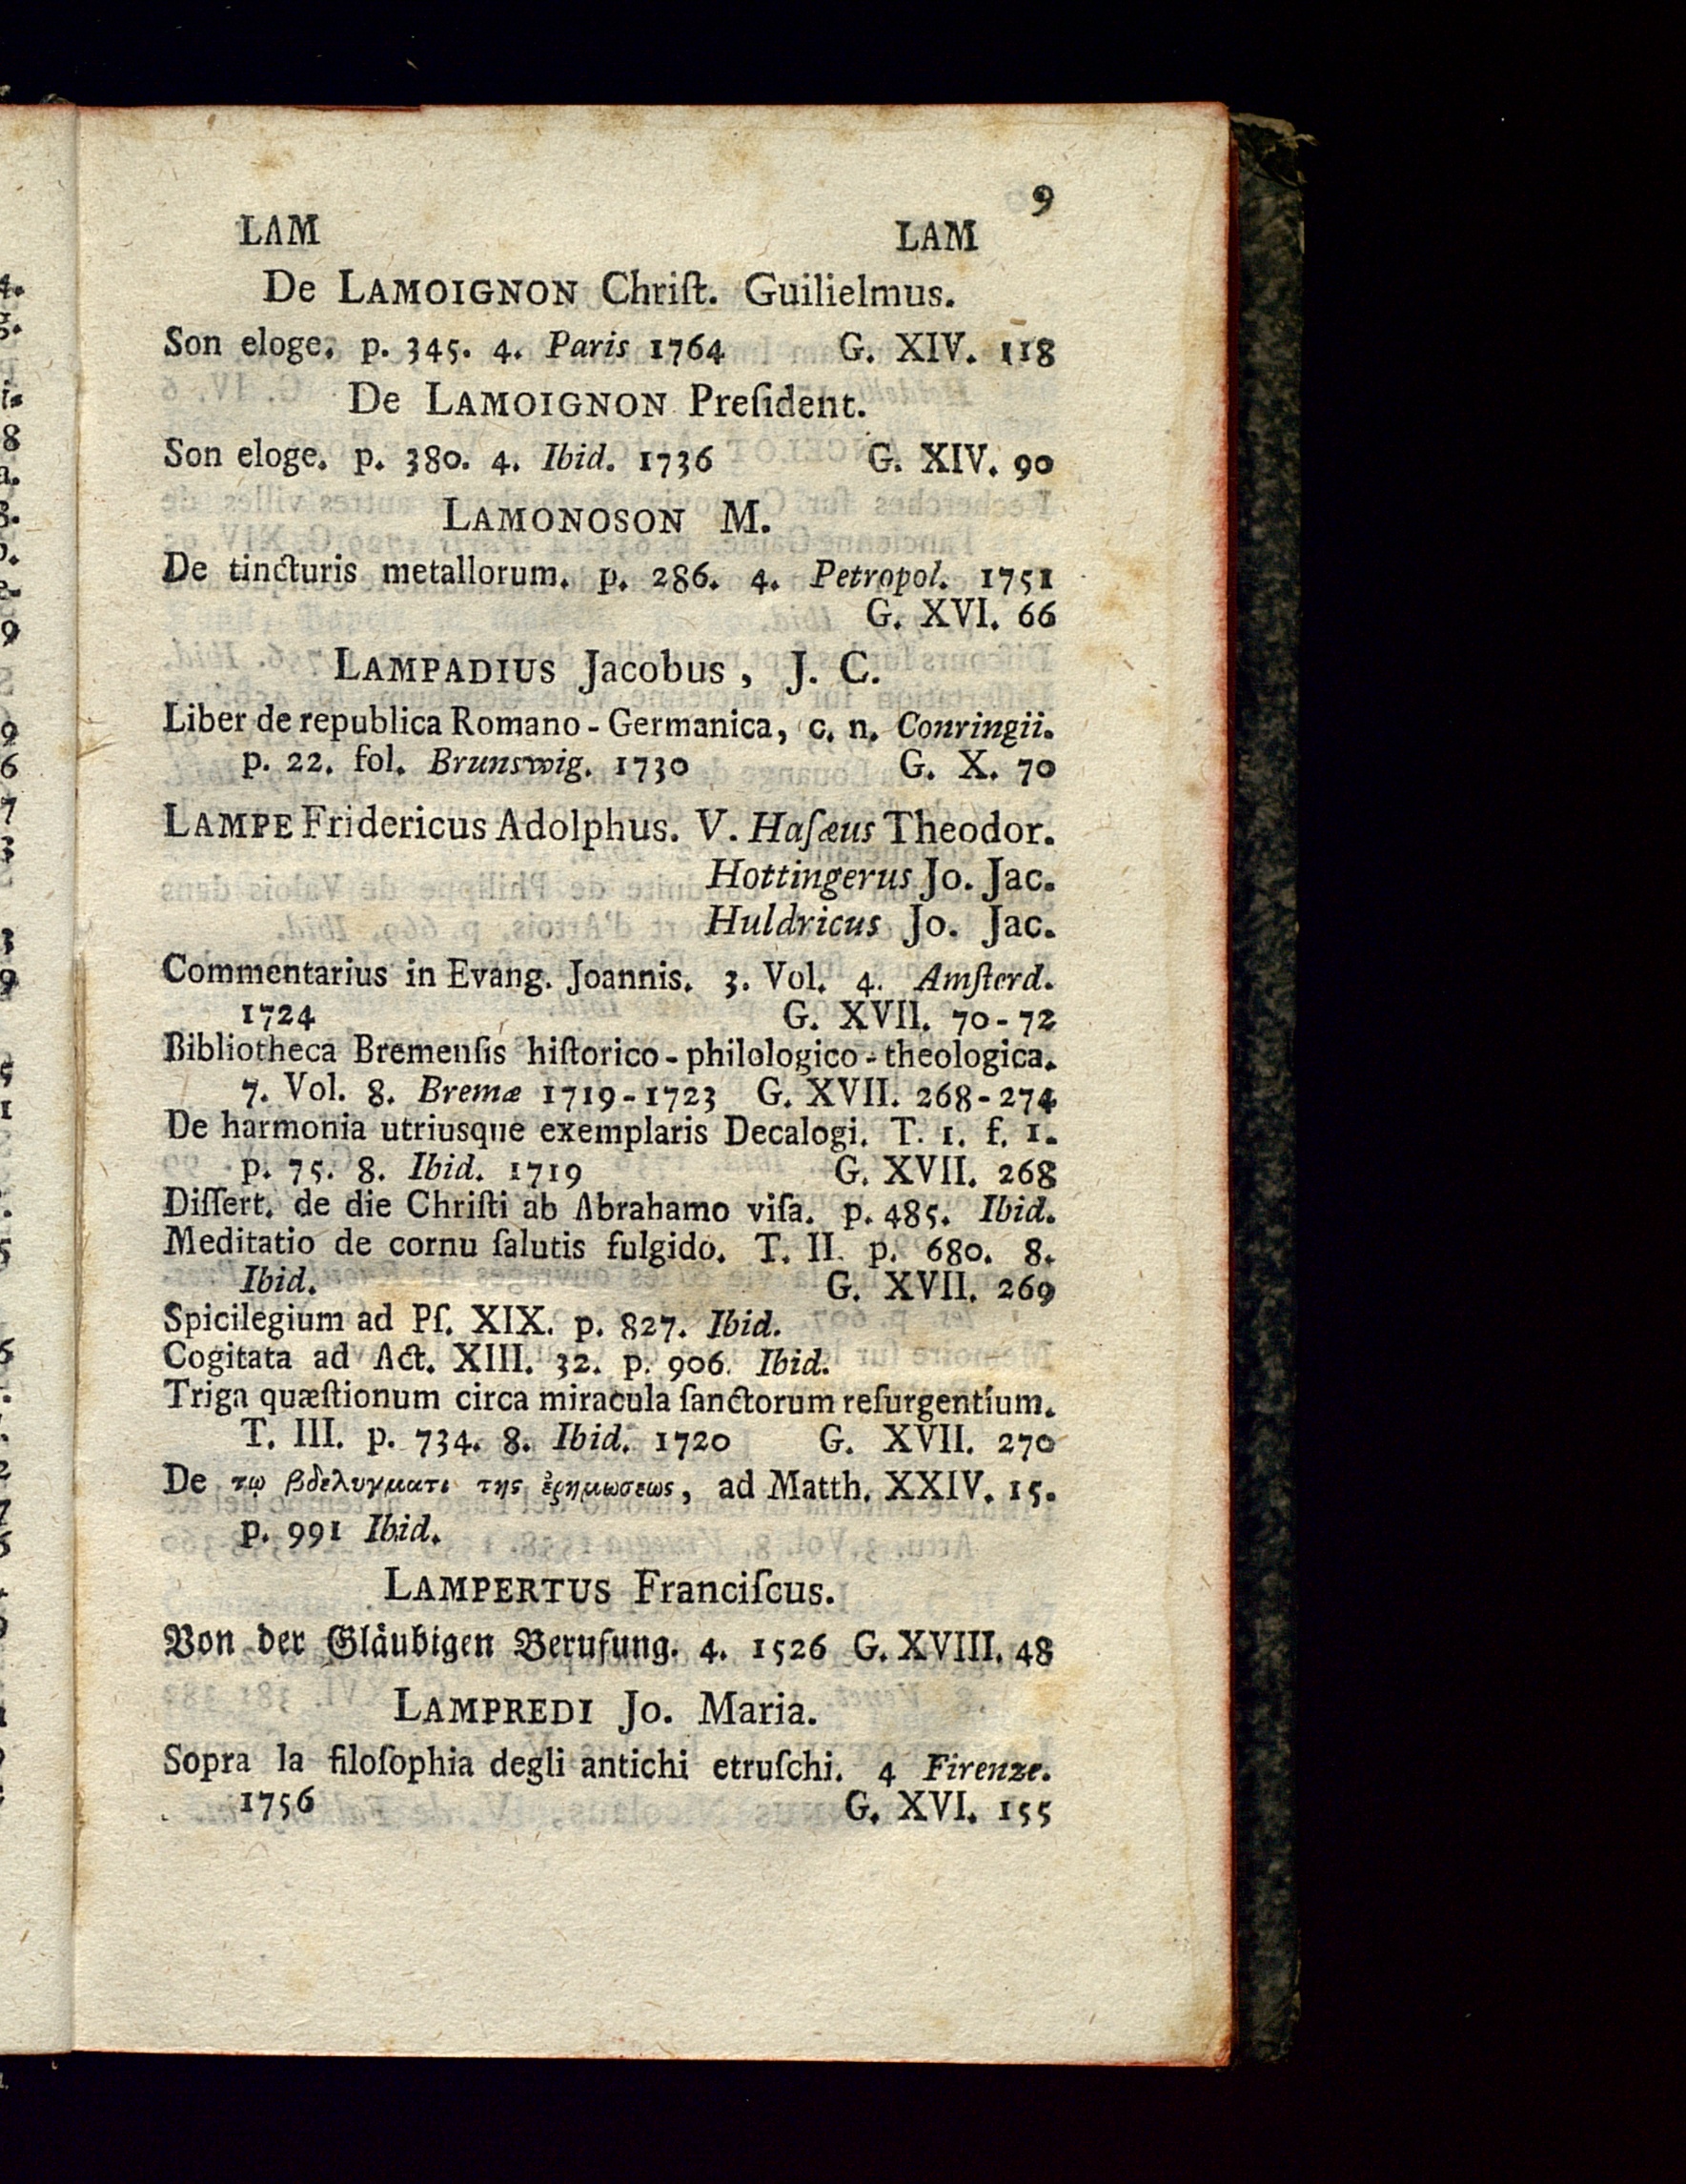 9
LAM LAM
De LAMOIGNON Chriſt. Guilielmus.
Son eloge. p. 345. 4. Paris 1764 G. XIV. 118
De LAMOIGNON Preſident.
Son eloge. p. 380. 4. Ibid. 1736 G. XIV. 90
LAMONOSON M.
De tincturis metallorum. p. 286. 4. Petropol. 1751
G. XVI. 66
LAMPADIUS Jacobus, J. C.
Liber de republica Romano-Germanica, c. n. Conringii.
p. 22. fol. Brunswig. 1730 G. X. 70
LAMPE Fridericus Adolphus. V. Haſæus Theodor.
Hottingerus Jo. Jac.
Huldricus Jo. Jac.
Commentarius in Evang. Joannis. 3. Vol. 4. Amſterd.
1724 G. XVII. 70-72
Bibliotheca Bremenſis hiſtorico-philologico-theologica.
7. Vol. 8. Bremæ 1719-1723 G. XVII. 268-274
De harmonia utriusque exemplaris Decalogi. T. 1. f. 1.
p. 75. 8. Ibid. 1719 G. XVII. 268
Diſſert. de die Chriſti ab Abrahamo viſa. p. 485. Ibid.
Meditatio de cornu ſalutis fulgido. T. II. p. 680. 8.
Ibid. G. XVII. 269
Spicilegium ad Pſ. XIX. p. 827. Ibid.
Cogitata ad Act. XIII. 32. p. 906. Ibid.
Triga quæſtionum circa miracula ſanctorum reſurgentium.
T. III. p. 734. 8. Ibid. 1720 G. XVII. 270
De τῳ βδελυγματι της ἐρημωσεως, ad Matth. XXIV. 15.
p. 991 Ibid.
LAMPERTUS Franciſcus.
Von der Gläubigen Beruſung. 4. 1526 G. XVIII. 48
LAMPREDI Jo. Maria.
Sopra la filoſophia degli antichi etruſchi. 4 Firenze.
1756 G. XVI. 155